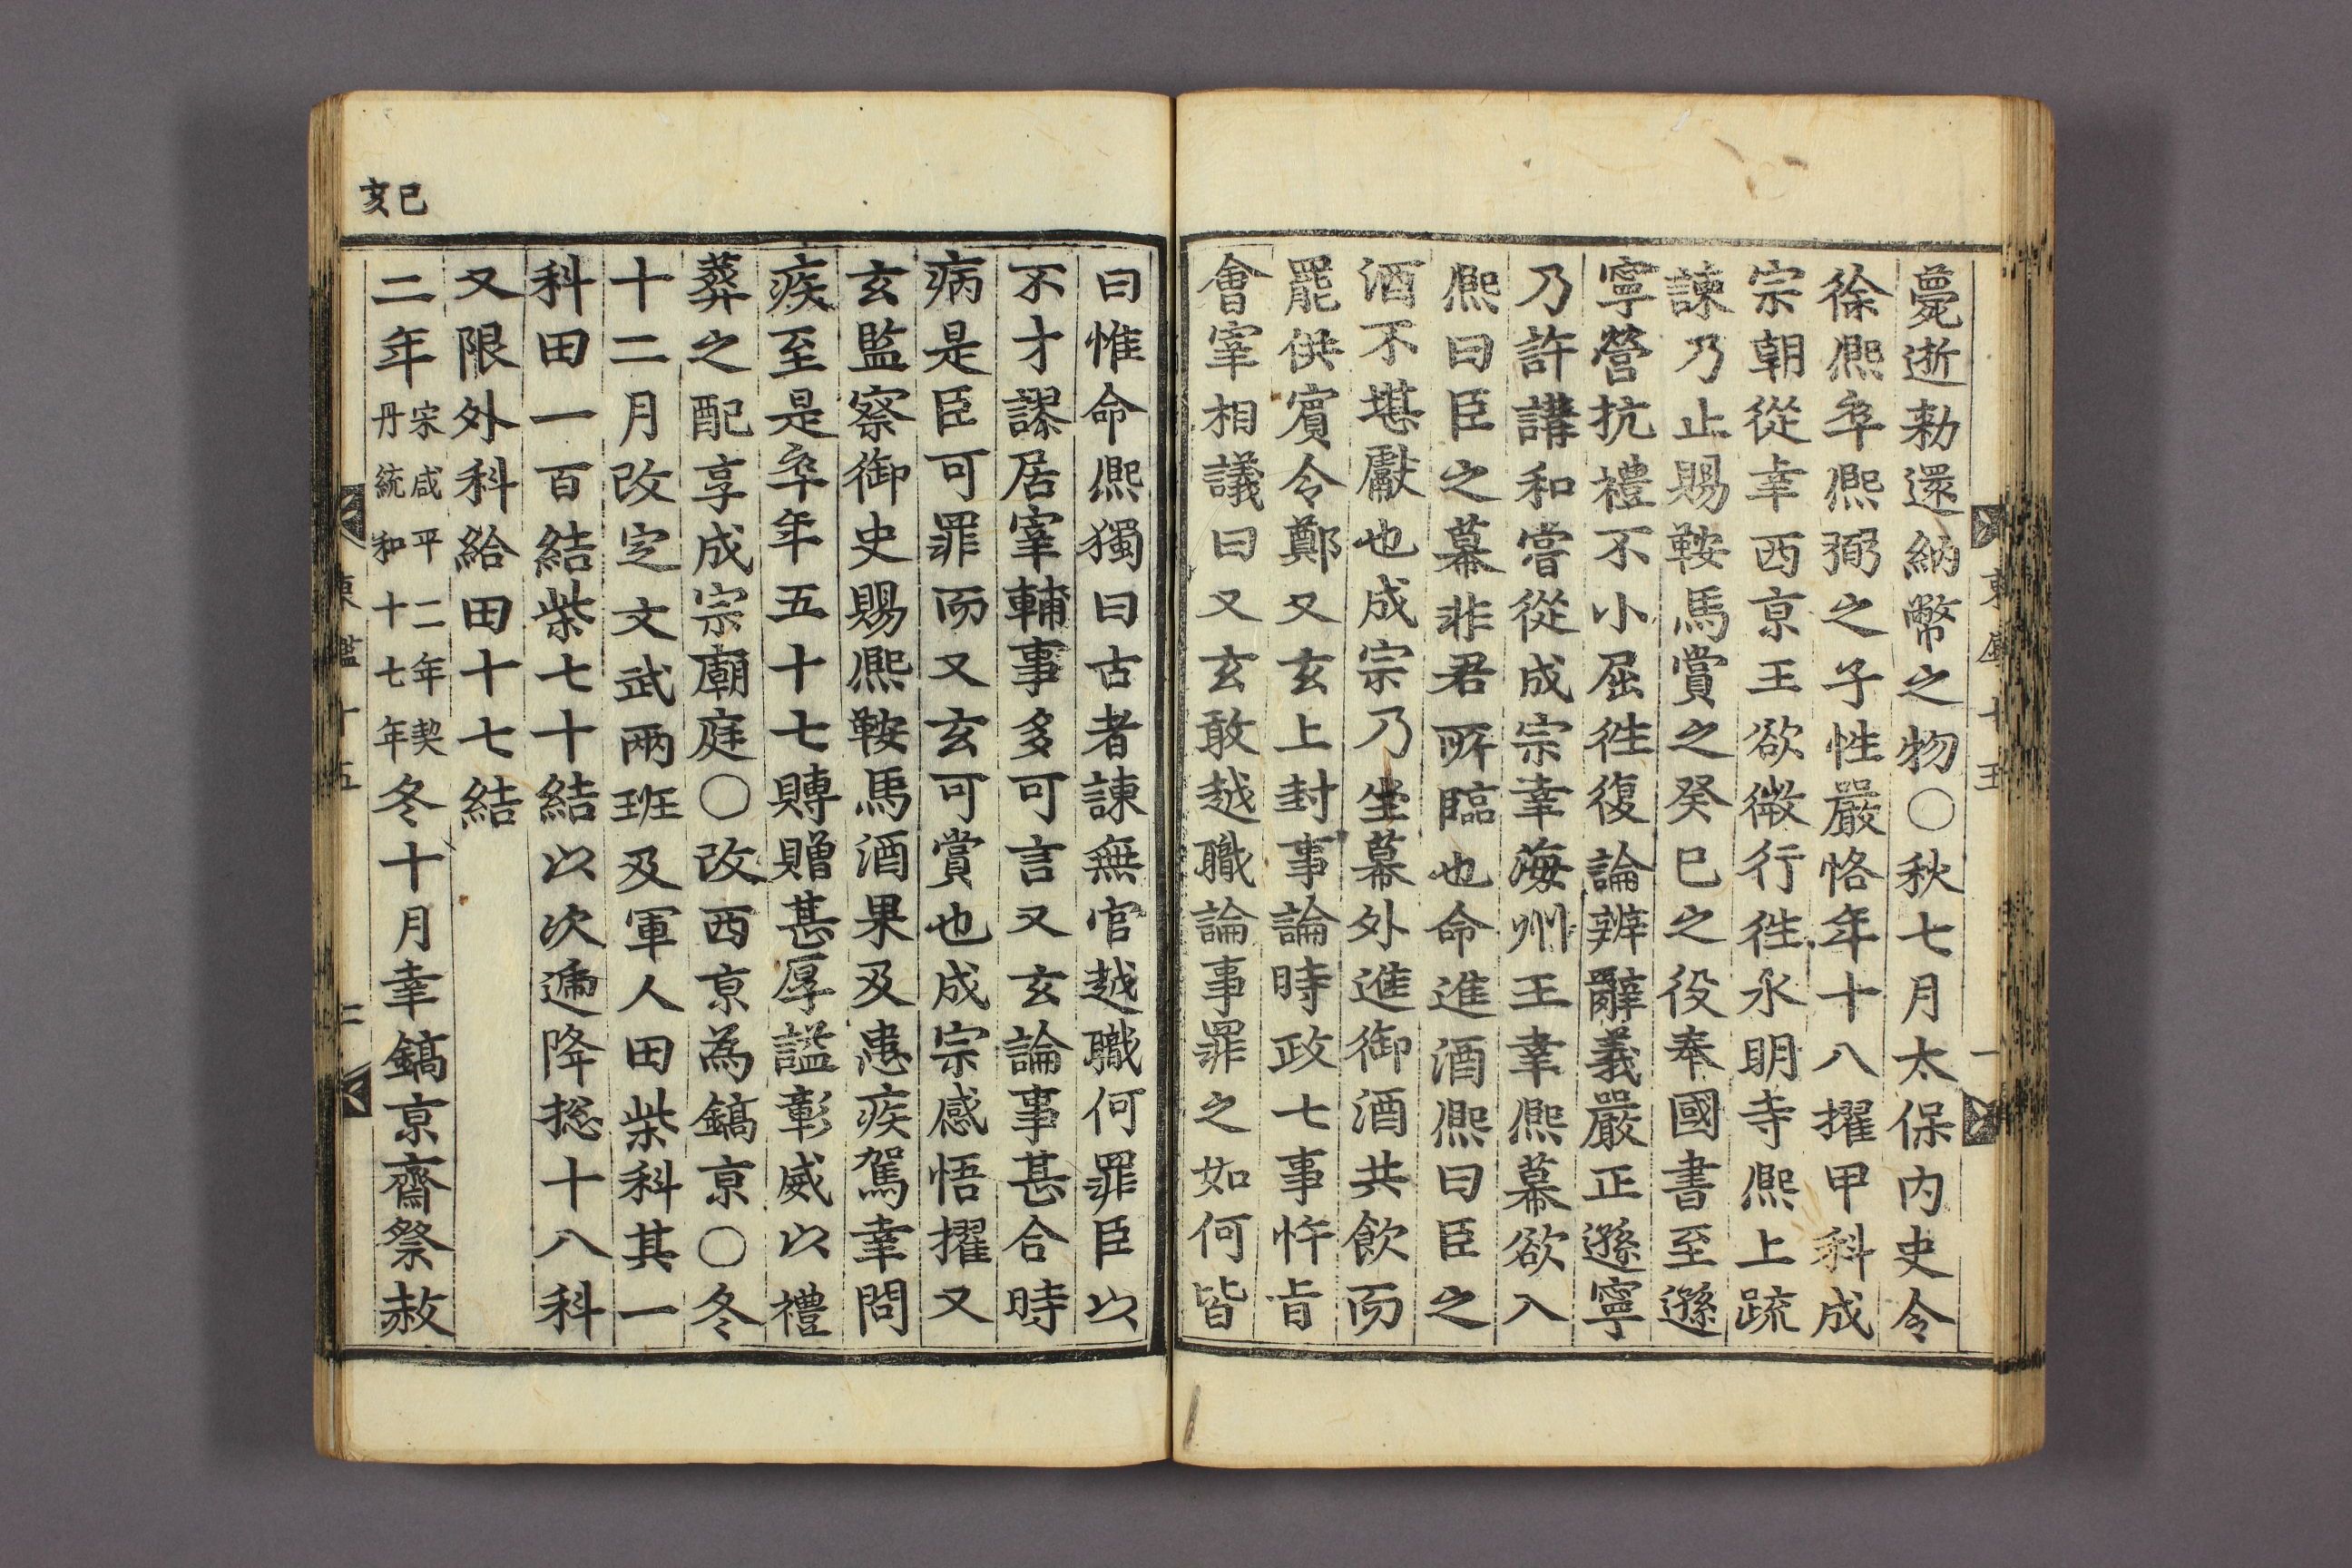 薨逝勑還納幣之物○秋七月太保內史令
徐熙卒熙弼之子性嚴恪年十八擢甲科成
宗朝從幸西京王欲微行徃永明寺熙上䟽
諫乃止賜鞍馬賞之癸巳之役奉國書至遜
寧營抗禮不小屈徃復論辨辭義嚴正遜寧
乃許講和嘗從成宗幸海州王幸熙幕欲入
熙曰臣之幕非君所臨也命進酒熙曰臣之
酒不堪獻也成宗乃坐幕外進御酒共飮而
罷供賓令鄭又玄上封事論時政七事忤旨
會宰相議曰又玄敢越職論事罪之如何皆
曰惟命熙獨曰古者諫無官越職何罪臣以
不才謬居宰輔事多可言又玄論事甚合時
病是臣可罪而又玄可賞也成宗感悟擢又
玄監察御史賜熙鞍馬酒果及患疾駕幸問
疾至是卒年五十七賻贈甚厚諡彰威以禮
葬之配享成宗廟庭○改西京為鎬京○冬
十二月改定文武兩班及軍人田柴科其一
科田一百結柴七十結以次遞降揔十八科
又限外科給田十七結
己亥
二年宋咸平二年契丹統和十七年冬十月幸鎬京齋祭赦
東鑑十五 二